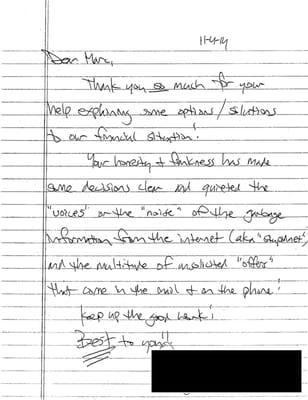 11-4-14
Dear Marc,
Thank you so much for your
help explaining some options/solutions
to our financial situation!
Your honesty & frankness has made
some decisions clear and quieted the
"voices" or the "noise" of the garbage
information from the internet (aka "stupidnet")
and the multitude of unsolicited "offers"
that come in the mail & on the phone!
Keep up the good work!
Best to you!!